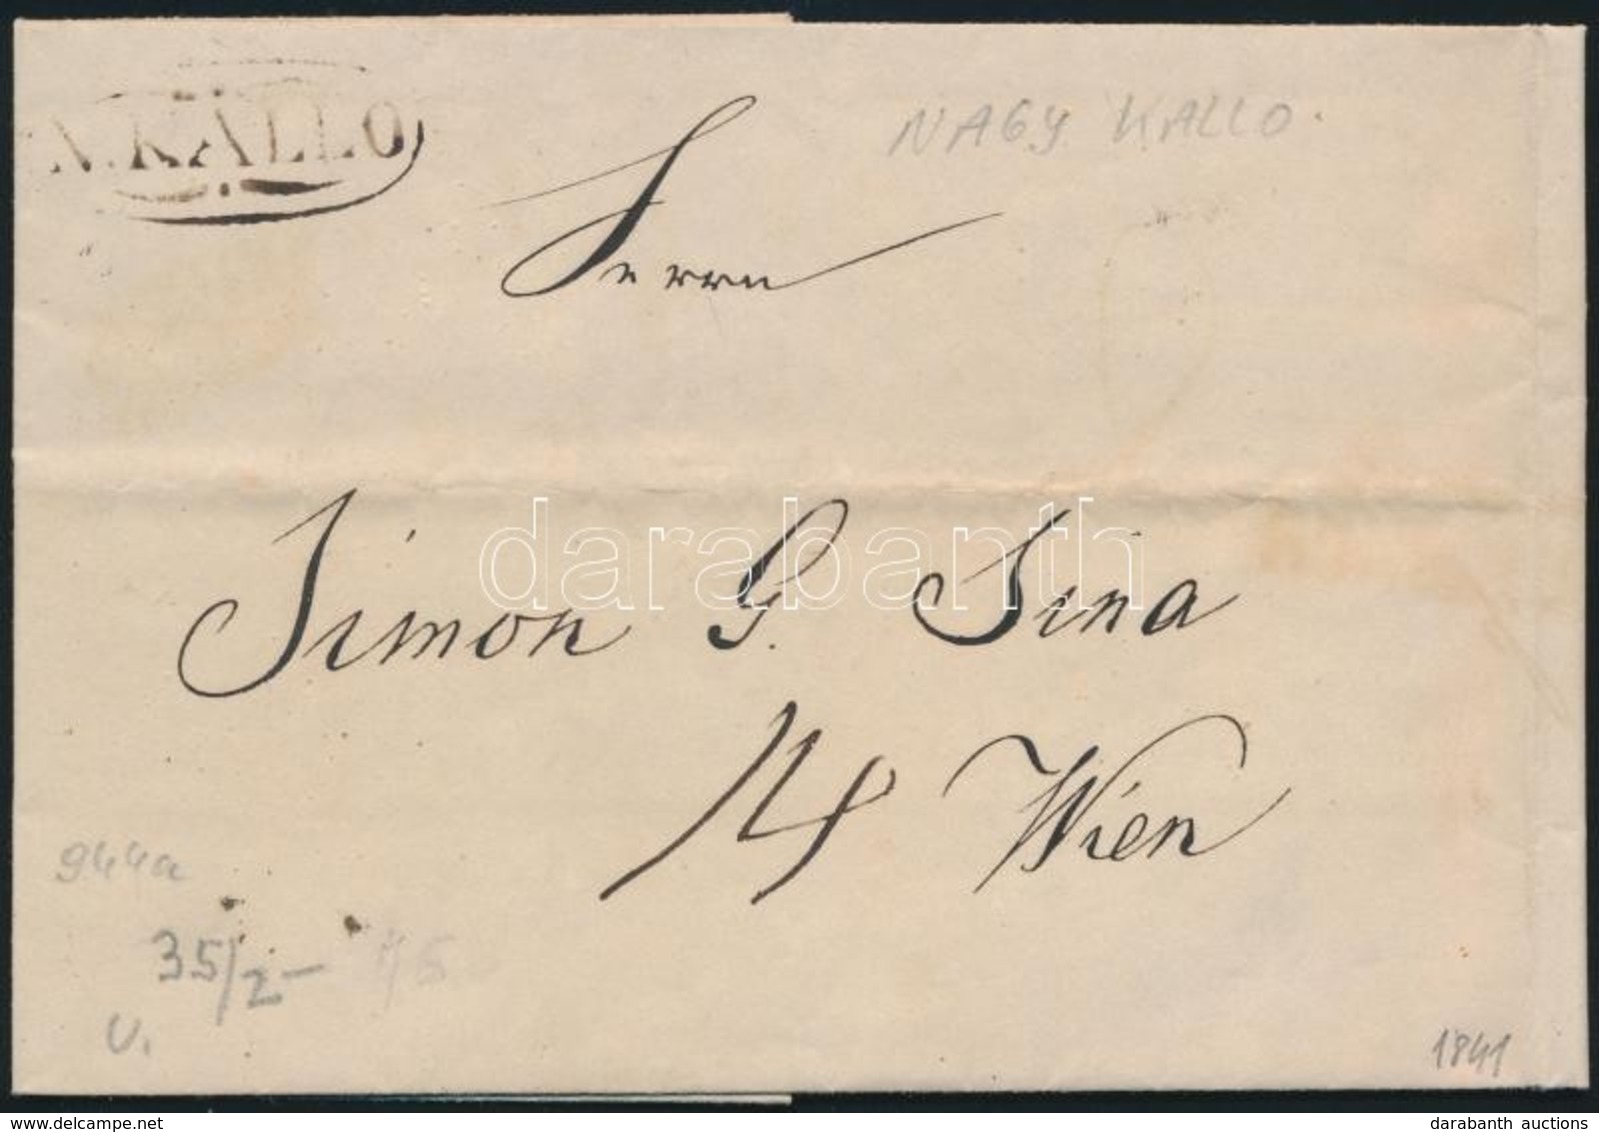 N.KÁLLO
NAGY KALLO.
Herrn
Simon G. Sina
Wien
944a
35/2-
U.
1841
darabanth
delcampe.net
darabanth auctions